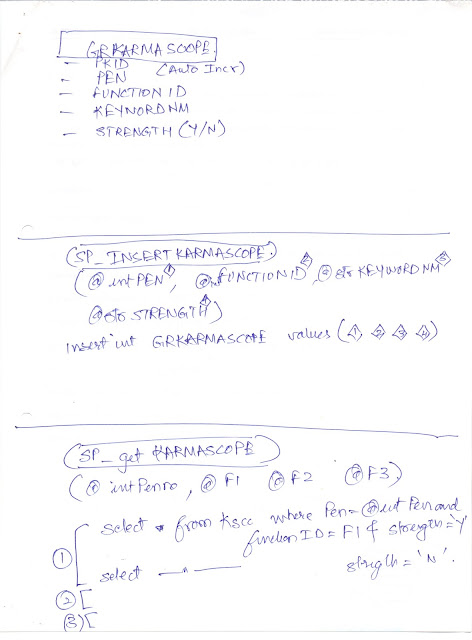 GRKARMASCOPE.
- PKID (Auto Incr)
- PEN
- FUNCTION ID
- KEYWORDNM
- STRENGTH (Y/N)
(SP_INSERT KARMASCOPE.)
(@ intPEN 1, @intFUNCTIONID 2, @ str KEYWORDNM 3
@str STRENGTH 4)
Insert int GRKARMASCOPE values (1, 2 3 4)
(SP_get KARMASCOPE)
(@ intPenno, @ F1 @ F2 @ F3)
1 select * from Kscc where Pen=@int Pen and
function ID = F1 & strength = 'Y'
select —"— strength = 'N'.
2 [
3 [